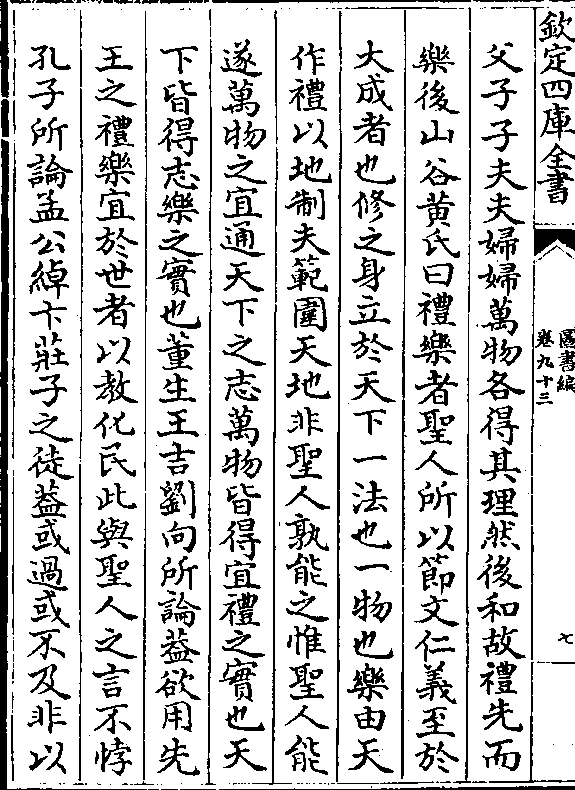 欽定四庫全書
圖書編
卷九十三
七
父子子夫夫婦婦萬物各得其理然後和故禮先而
樂後山谷黃氏曰禮樂者聖人所以節文仁義至於
大成者也修之身立於天下一法也一物也樂由天
作禮以地制夫範圍天地非聖人孰能之惟聖人能
遂萬物之宜通天下之志萬物皆得宜禮之實也天
下皆得志樂之實也董生王吉劉向所論葢欲用先
王之禮樂宜於世者以教化民此與聖人之言不悖
孔子所論孟公綽卞莊子之徒葢或過或不及非以